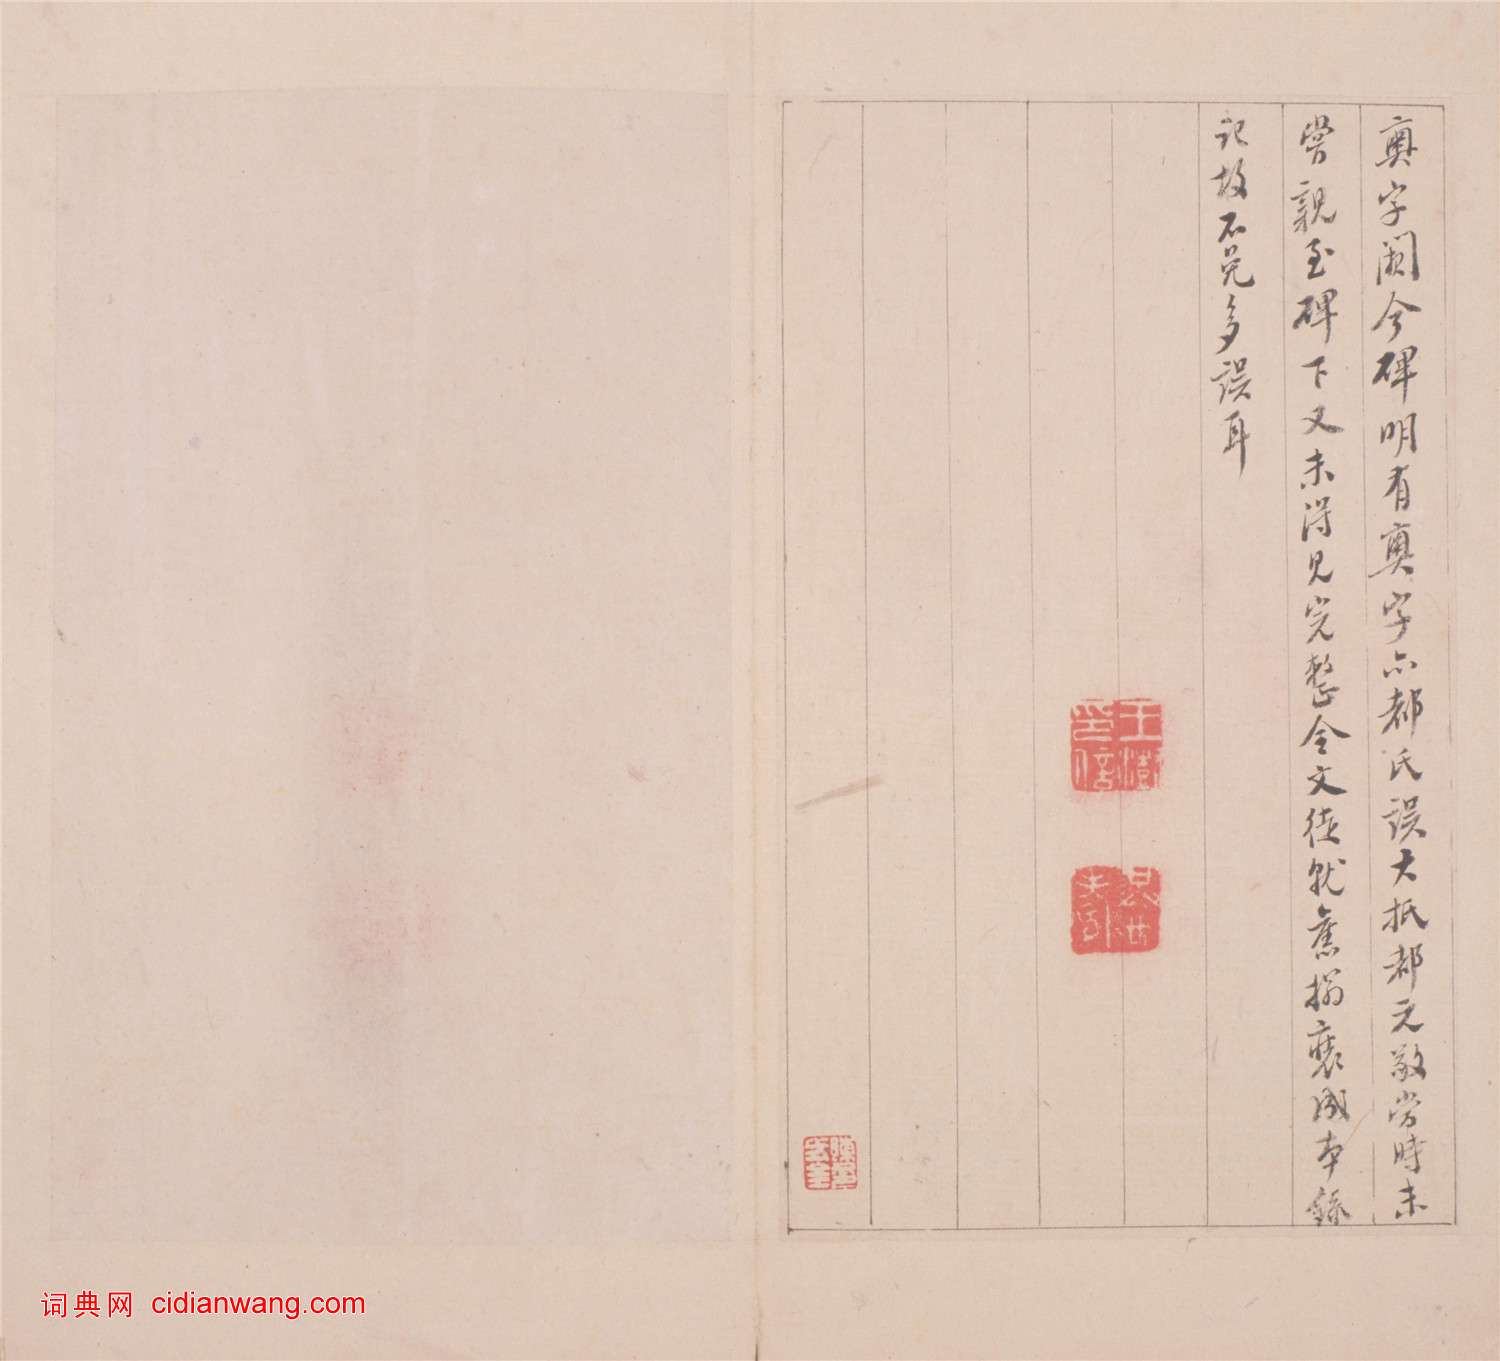 奧字闕今碑明有奧字亦都氏誤大抵都元敬當時未
嘗親至碑下又未得見完整全文徒就舊搨裝成本錄
記故不免多誤耳
王澍印信
词典网 cidianwang.com